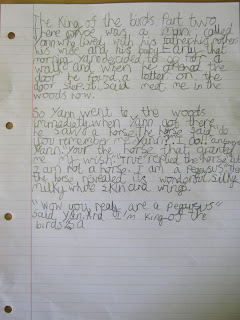 The King of the birds Part two
There once was a man called
Yann who lived with his father his mother
his wife and his baby. Early that
morning Yan decided to go for a
walk and when he opened the
door he found a letter on the
door step. It said meet me in the
woods now.
So Yann went to the woods
immediatly when Yann got there
he saw a horse the horse said do
you remember me Yann? I do! answered
Yann. Your the horse that granted
me my wish. True replied the horse but
I am not a horse. I am a pegasus. Then
the horse revealed it's wonderful silky
milky white skin and wings.
"Wow you realy are a pegusus"
said Yan. And I'm King of the
birds